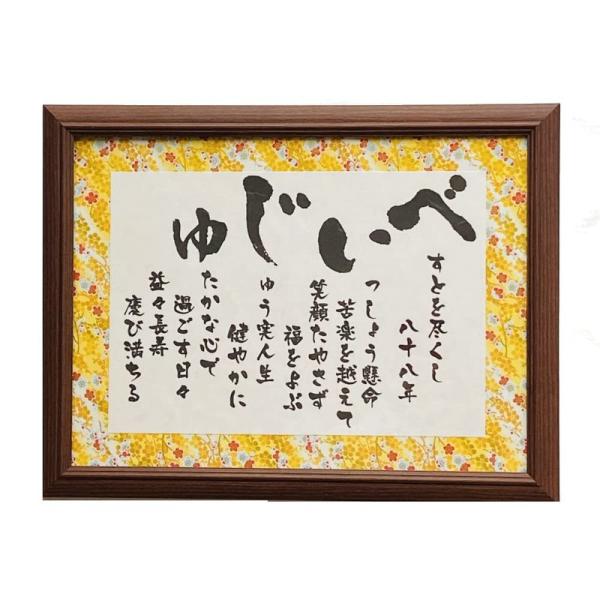 べいじゅ
すとを尽くし
八十八年
つしょう懸命
苦楽を越えて
笑顔たやさず
福をよぶ
ゆう実人生
健やかに
たかな心で
過ごす日々
益々長寿
慶び満ちる